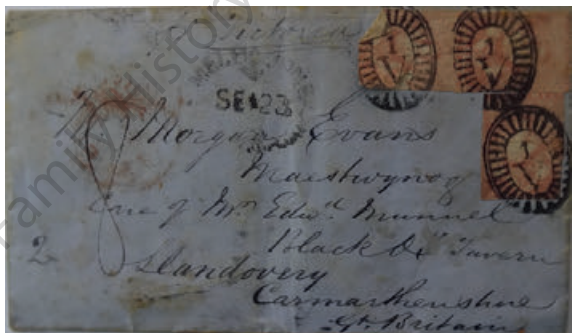 Victoria
SE 23
Morgan Evans
Care of Mr Edwd Munnel
Black Ox Tavern
Llandovery
Carmarthenshire
Gt Britain
8
2
1
V
1
V
1
V
Family History